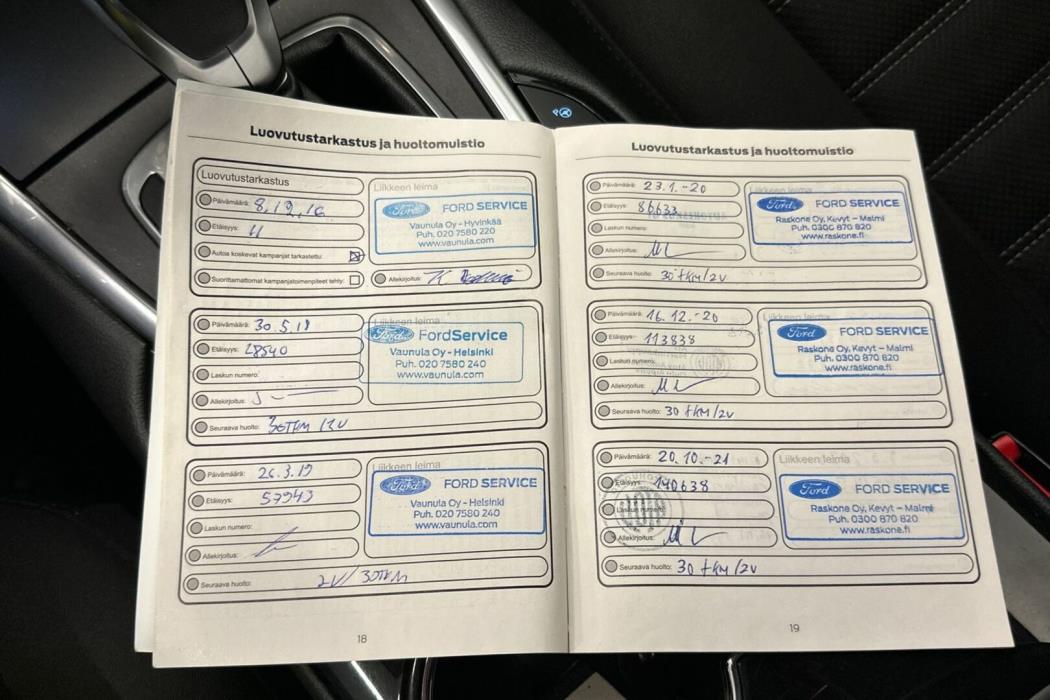 Luovutustarkastus ja huoltomuistio
Luovutustarkastus
Päivämäärä: 8.12.16
Etäisyys: 11
Autoa koskevat kampanjat tarkastettu:
Suorittamattomat kampanjatoimenpiteet tehty:
Liikkeen leima
Ford FORD SERVICE
Vaunula Oy - Hyvinkää
Puh. 020 7580 220
www.vaunula.com
Allekirjoitus:
Päivämäärä: 30.5.18
Etäisyys: 28540
Laskun numero:
Allekirjoitus:
Seuraava huolto: 30TKM /2V
Liikkeen leima
Ford FordService
Vaunula Oy - Helsinki
Puh. 020 7580 240
www.vaunula.com
Päivämäärä: 26.3.19
Etäisyys: 57943
Laskun numero:
Allekirjoitus:
Seuraava huolto: 2V/30TKM
Liikkeen leima
Ford FORD SERVICE
Vaunula Oy - Helsinki
Puh. 020 7580 240
www.vaunula.com
18
Luovutustarkastus ja huoltomuistio
Päivämäärä: 23.1.-20
Etäisyys: 86633
Laskun numero:
Allekirjoitus:
Seuraava huolto: 30 tkm/2v
Liikkeen leima
Ford FORD SERVICE
Raskone Oy, Kevyt - Malmi
Puh. 0300 870 820
www.raskone.fi
Päivämäärä: 16.12.-20
Etäisyys: 113838
Laskun numero:
Allekirjoitus:
Seuraava huolto: 30 tkm/2v
Liikkeen leima
Ford FORD SERVICE
Raskone Oy, Kevyt - Malmi
Puh. 0300 870 820
www.raskone.fi
Päivämäärä: 20.10.-21
Etäisyys: 140638
Laskun numero:
Allekirjoitus:
Seuraava huolto: 30 tkm/2v
Liikkeen leima
Ford FORD SERVICE
Raskone Oy, Kevyt - Malmi
Puh. 0300 870 820
www.raskone.fi
19